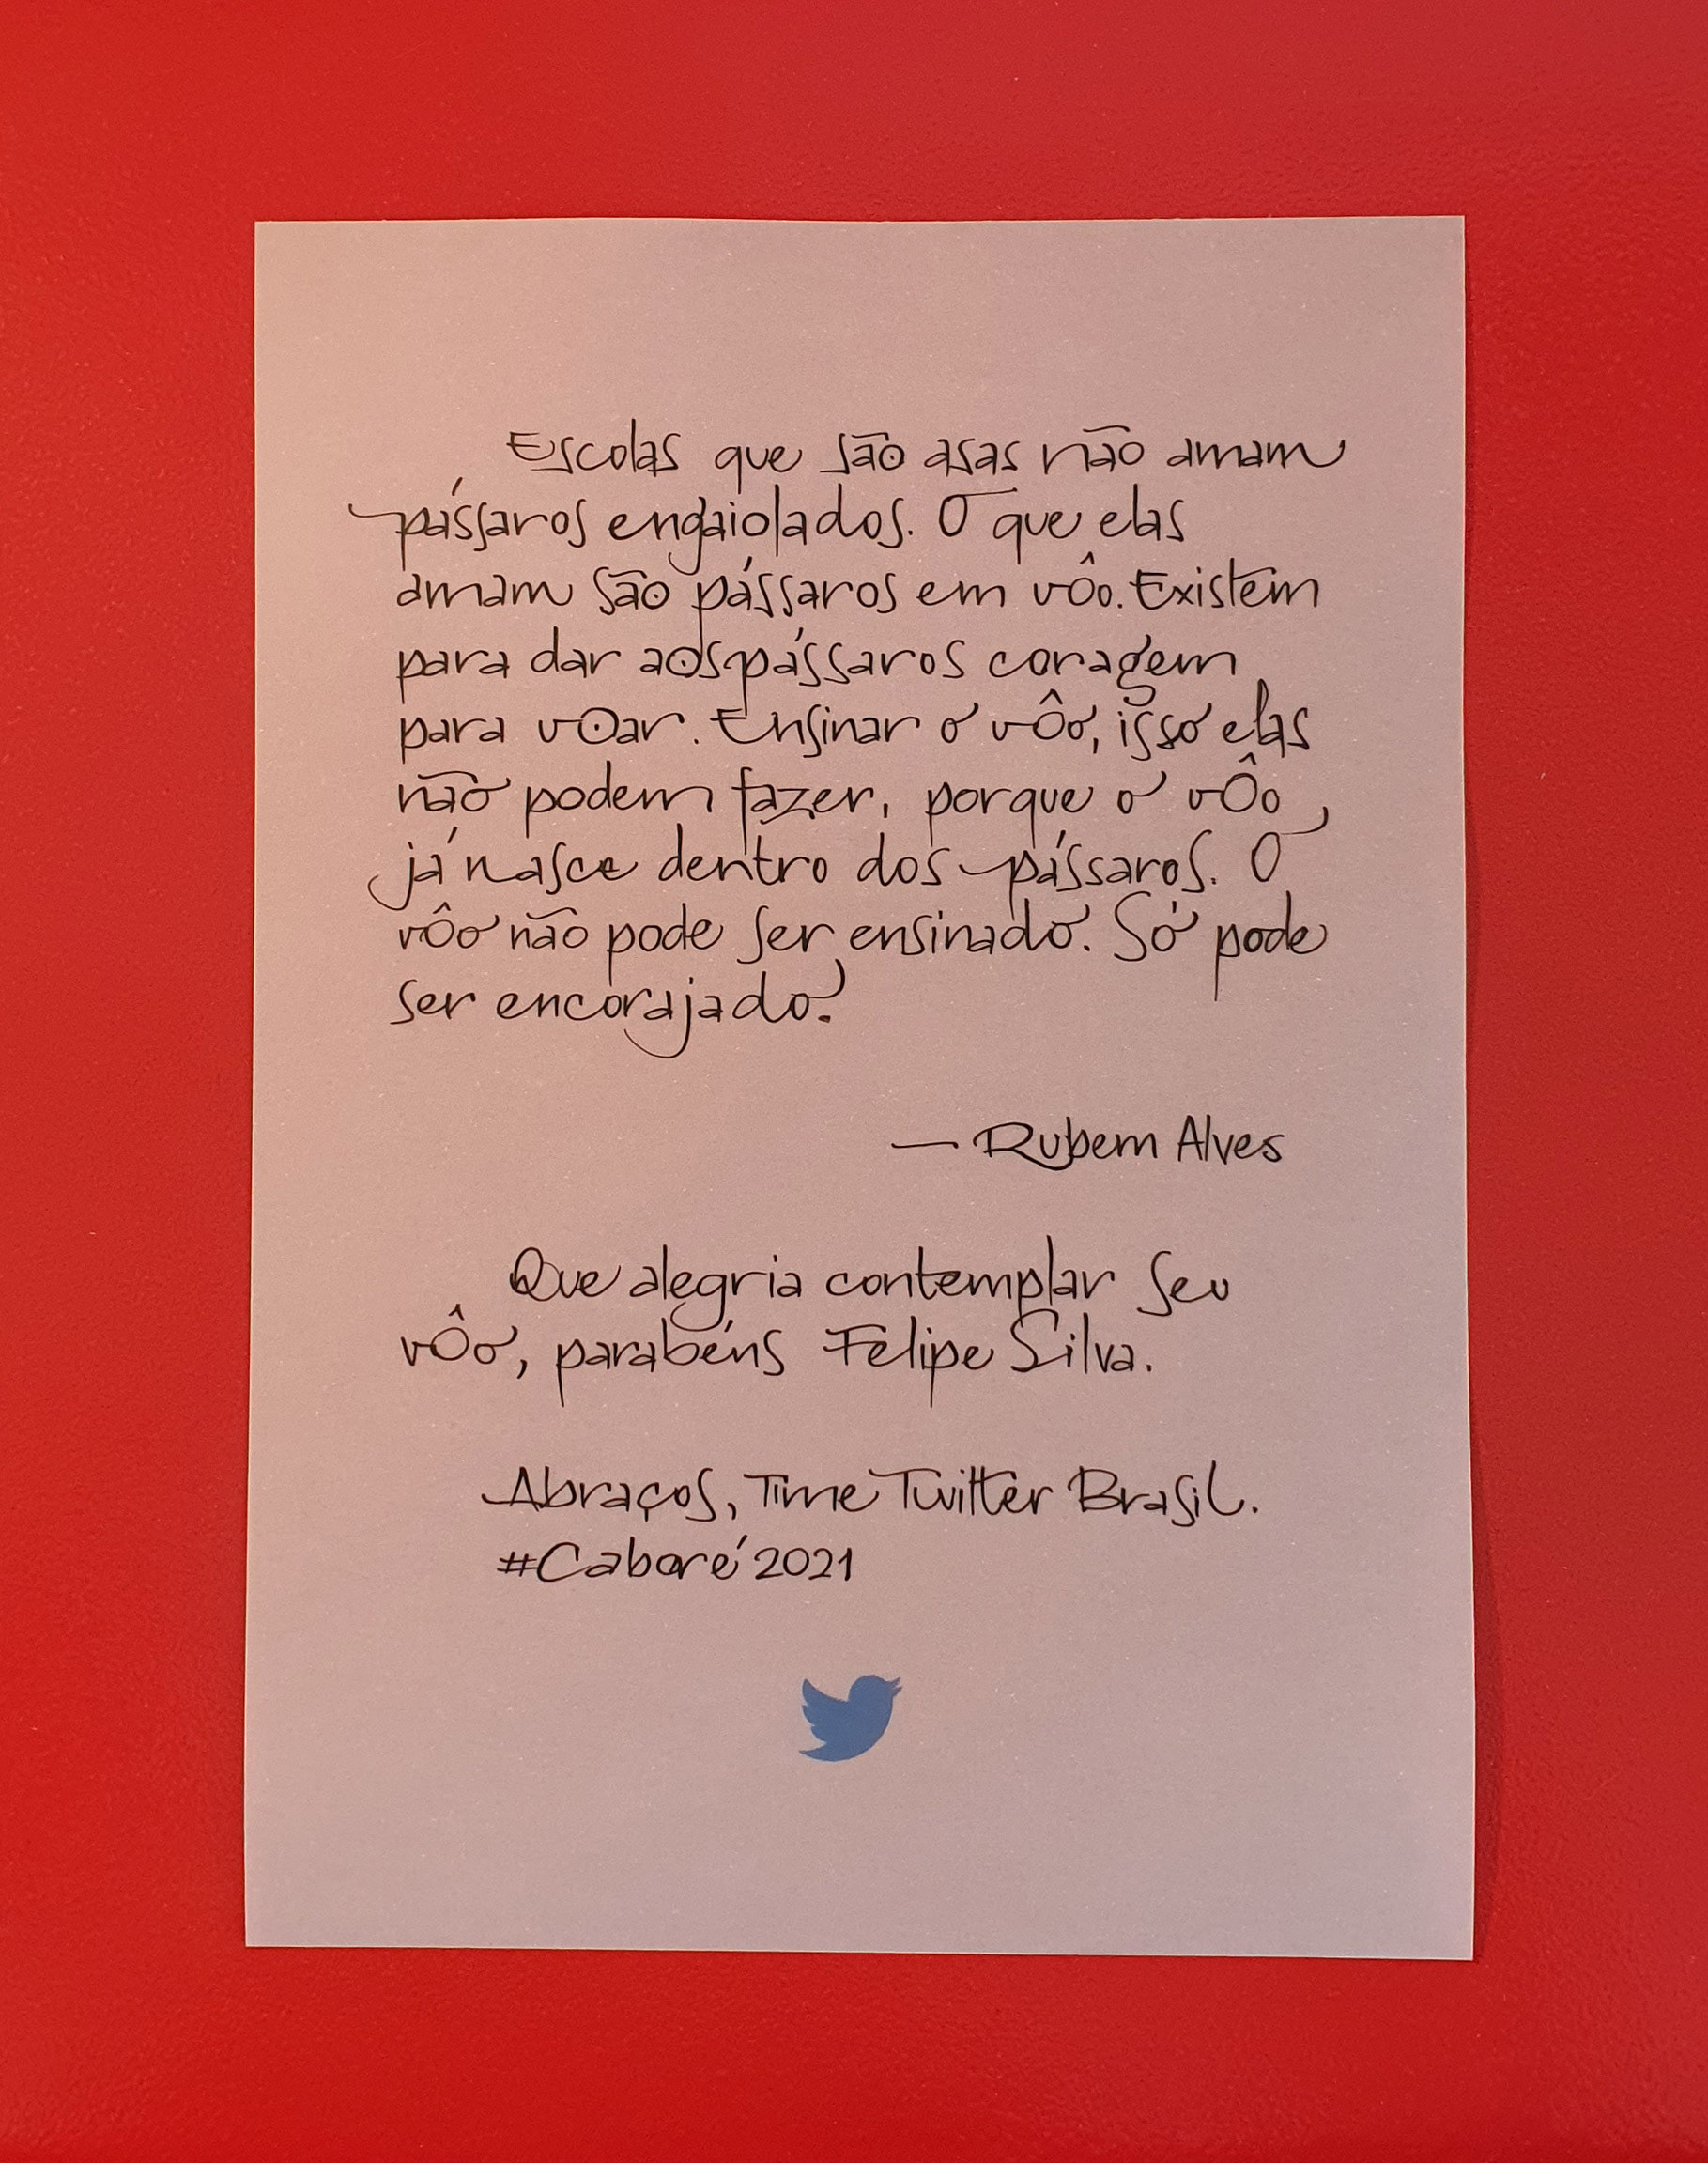 Escolas que são asas não amam
pássaros engaiolados. O que elas
amam são pássaros em vôo. Existem
para dar aos pássaros coragem
para voar. Ensinar o vôo, isso elas
não podem fazer, porque o vôo
já nasce dentro dos pássaros. O
vôo não pode ser ensinado. Só pode
ser encorajado.
— Rubem Alves
Que alegria contemplar seu
vôo, parabéns Felipe Silva.
Abraços, Time Twitter Brasil.
#Caboré 2021